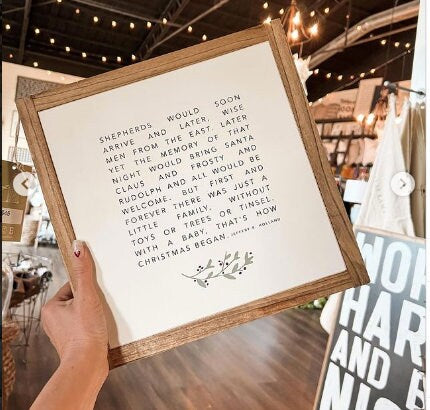 SHEPHERDS WOULD SOON
ARRIVE AND LATER, WISE
MEN FROM THE EAST. LATER
YET THE MEMORY OF THAT
NIGHT WOULD BRING SANTA
CLAUS AND FROSTY AND
RUDOLPH AND ALL WOULD BE
WELCOME. BUT FIRST AND
FOREVER THERE WAS JUST A
LITTLE FAMILY, WITHOUT
TOYS OR TREES OR TINSEL.
WITH A BABY. THAT'S HOW
CHRISTMAS BEGAN. JEFFERY R. HOLLAND
WOR
HAR
AND B
NIC